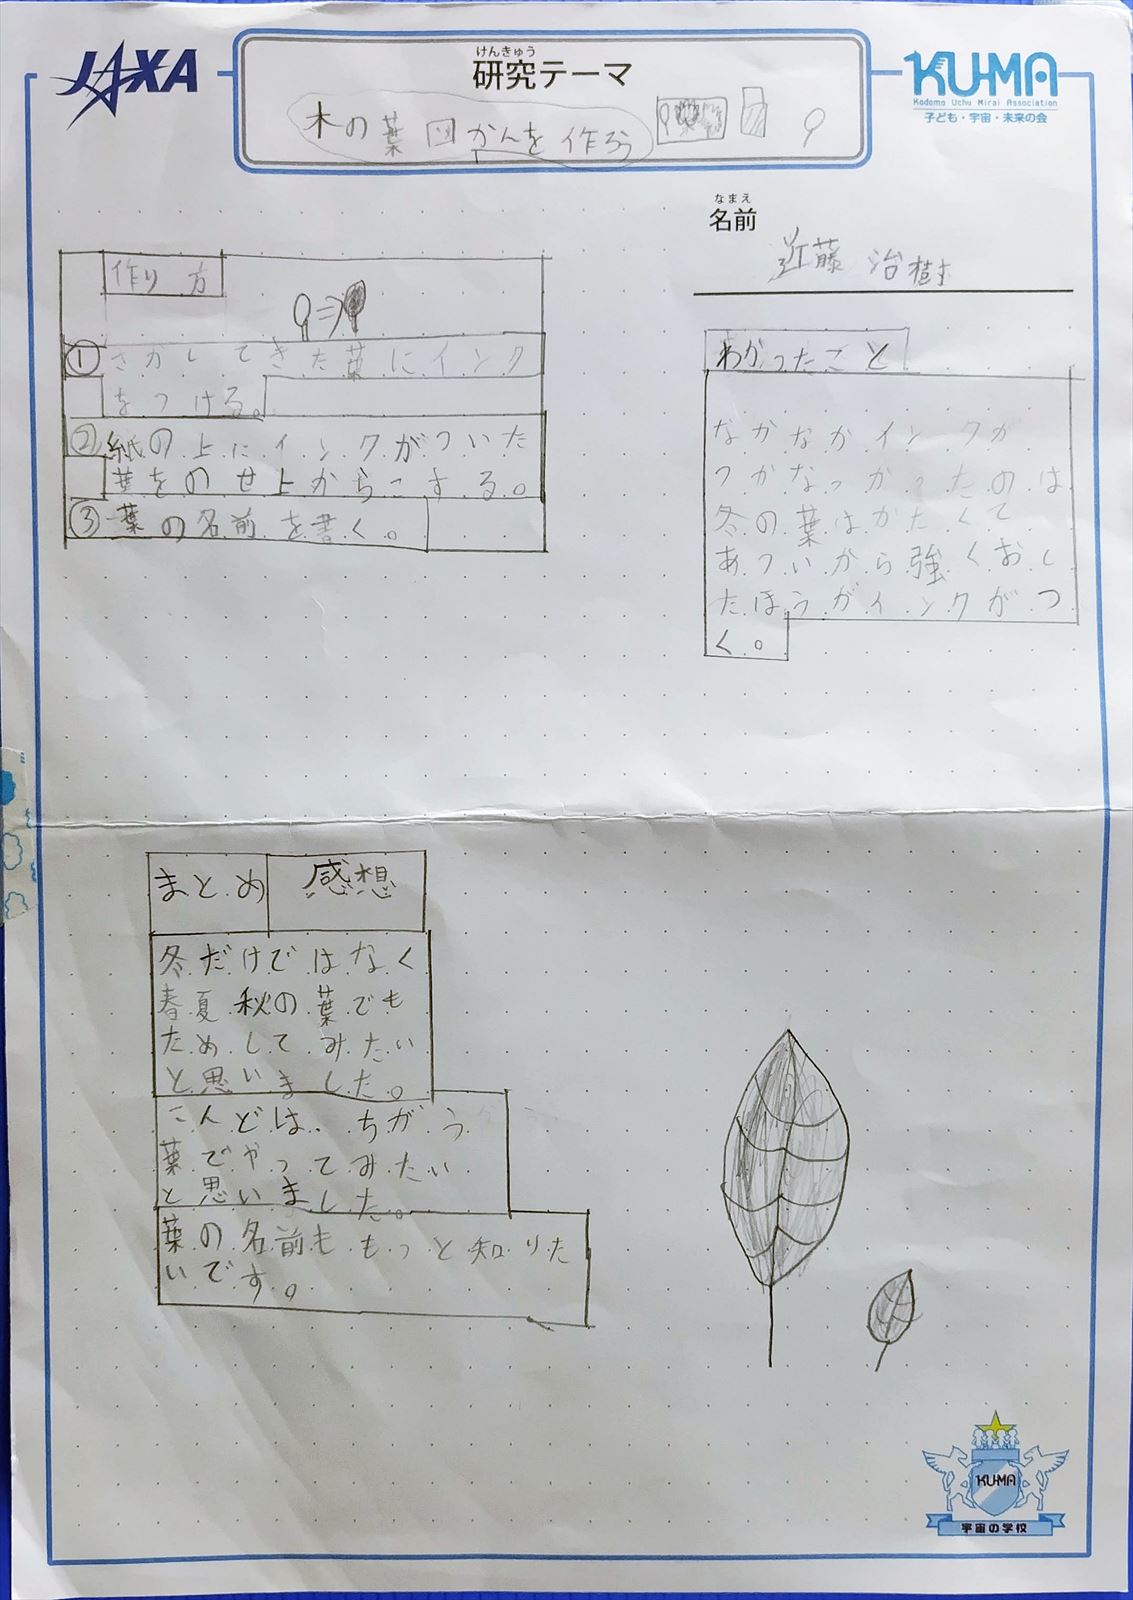 JAXA
けんきゅう
研究テーマ
KU-MA
Kodomo Uchu Mirai Association
子ども・宇宙・未来の会
木の葉図かんを作ろう
なまえ
名前
近藤 治樹
作り方
①さがしてきた葉にインク
をつける。
②紙の上にインクがついた
葉をのせ上からこする。
③葉の名前を書く。
わかったこと
なかなかインクが
つかなっかったのは
冬の葉はかたくて
あついから強くおし
たほうがインクがつ
く。
まとめ 感想
冬だけではなく
春夏秋の葉でも
ためしてみたい
と思いました。
こんどは、ちがう
葉でやってみたい
と思いました。
葉の名前ももっと知りた
いです。
KU-MA
宇宙の学校